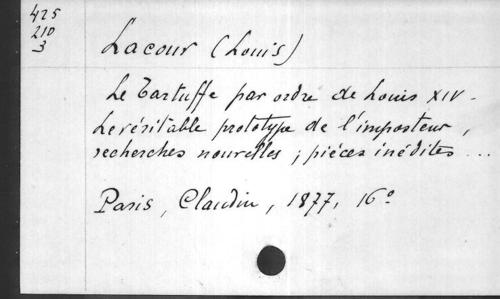 425
210
3
Lacour (Louis)
Le Tartuffe par ordre de Louis XIV.
Le véritable prototype de l'imposteur,
recherches nouvelles ; pièces inédites ...
Paris, Claudin, 1877, 16º